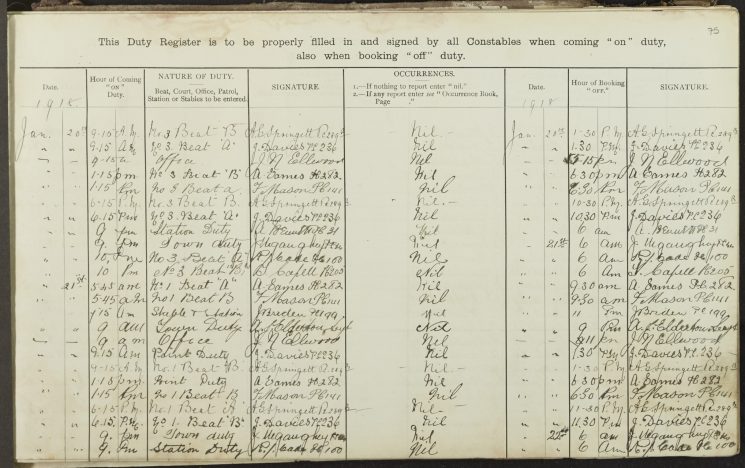 75
This Duty Register is to be properly filled in and signed by all Constables when coming "on" duty,
also when booking "off" duty.
Date. Hour of Coming "ON" Duty. NATURE OF DUTY. Beat, Court, Office, Patrol, Station or Stables to be entered. SIGNATURE. OCCURRENCES. 1.—If nothing to report enter "nil." 2.—If any report enter see "Occurrence Book, Page ." Date. Hour of Booking "OFF." SIGNATURE.
1918 1918
Jan. 20th 9.15 A.M. No 3 Beat B A E Springett Nil Jan. 20th 1-30 P.M. A E Springett
" " 9-15 Am No 3. Beat "A" J. Davies PC 236 Nil " " 1.30 P.M. J. Davies PC 236
" " 9-15 a Office J. N. Ellwood Nil " " 5-15 pm J. N. Ellwood
" " 1.15 pm No 3 Beat "B" A Eames PC 282 Nil " " 6 30 pm A Eames PC 282
" " 1.15 Pm No 3 Beat a. F. Mason PC 141 Nil " " 6.30 Pm F. Mason PC 141
" " 6-15 P.M. No. 3 Beat B. A. E. Springett Nil " " 10-30 P.M. A. E. Springett
" " 6.15 Pm No 3. Beat "A" J. Davies PC 236 Nil " " 10.30 Pm J. Davies PC 236
" " 9 pm Station Duty Nil " " 6 am
" " 9. pm Town duty Nil " 21st 6 am
" " 10, pm No 3, Beat "A" PC 100 Nil " " 6 am PC 100
" " 10 Pm No 3 Beat "B" Capell PC 205 Nil " " 6 Am Capell PC 205
" 21st 5.45 am No 1 Beat "A" A Eames PC 282 Nil " " 9.30 am A Eames PC 282
" " 5-45 am No 1 Beat B F. Mason PC 141 Nil " " 9-30 am F. Mason PC 141
" " Station J Breden PC 199 Nil " " 11 J Breden PC 199
" " 9 am Town Duty Nil " " 9 Pm
" " 9 am Office J. N. Ellwood Nil " " pm J. N. Ellwood
" " 9.15 Am Point Duty J. Davies PC 236 Nil " " 1.30 P.M. J. Davies PC 236
" " 9-15 A.M. No. 1 Beat B. A. E. Springett Nil " " 1-30 P.M. A. E. Springett
" " 1-15 pm Point Duty A Eames PC 282 Nil " " 6 30 pm A Eames PC 282
" " 1.15 Pm No 1 Beat B F. Mason PC 141 Nil " " 6.30 Pm F. Mason PC 141
" " 6-15 P.M. No. 1 Beat A A. E. Springett Nil " " 11-30 P.M. A. E. Springett
" " 6.15. P.M. No 1. Beat "B" J. Davies PC 236 Nil " " 11.30 Pm J. Davies PC 236
" " 9. pm Town duty Nil " 22nd 6 am
" " 9. Pm Station Duty PC 100 Nil " " 6 am PC 100